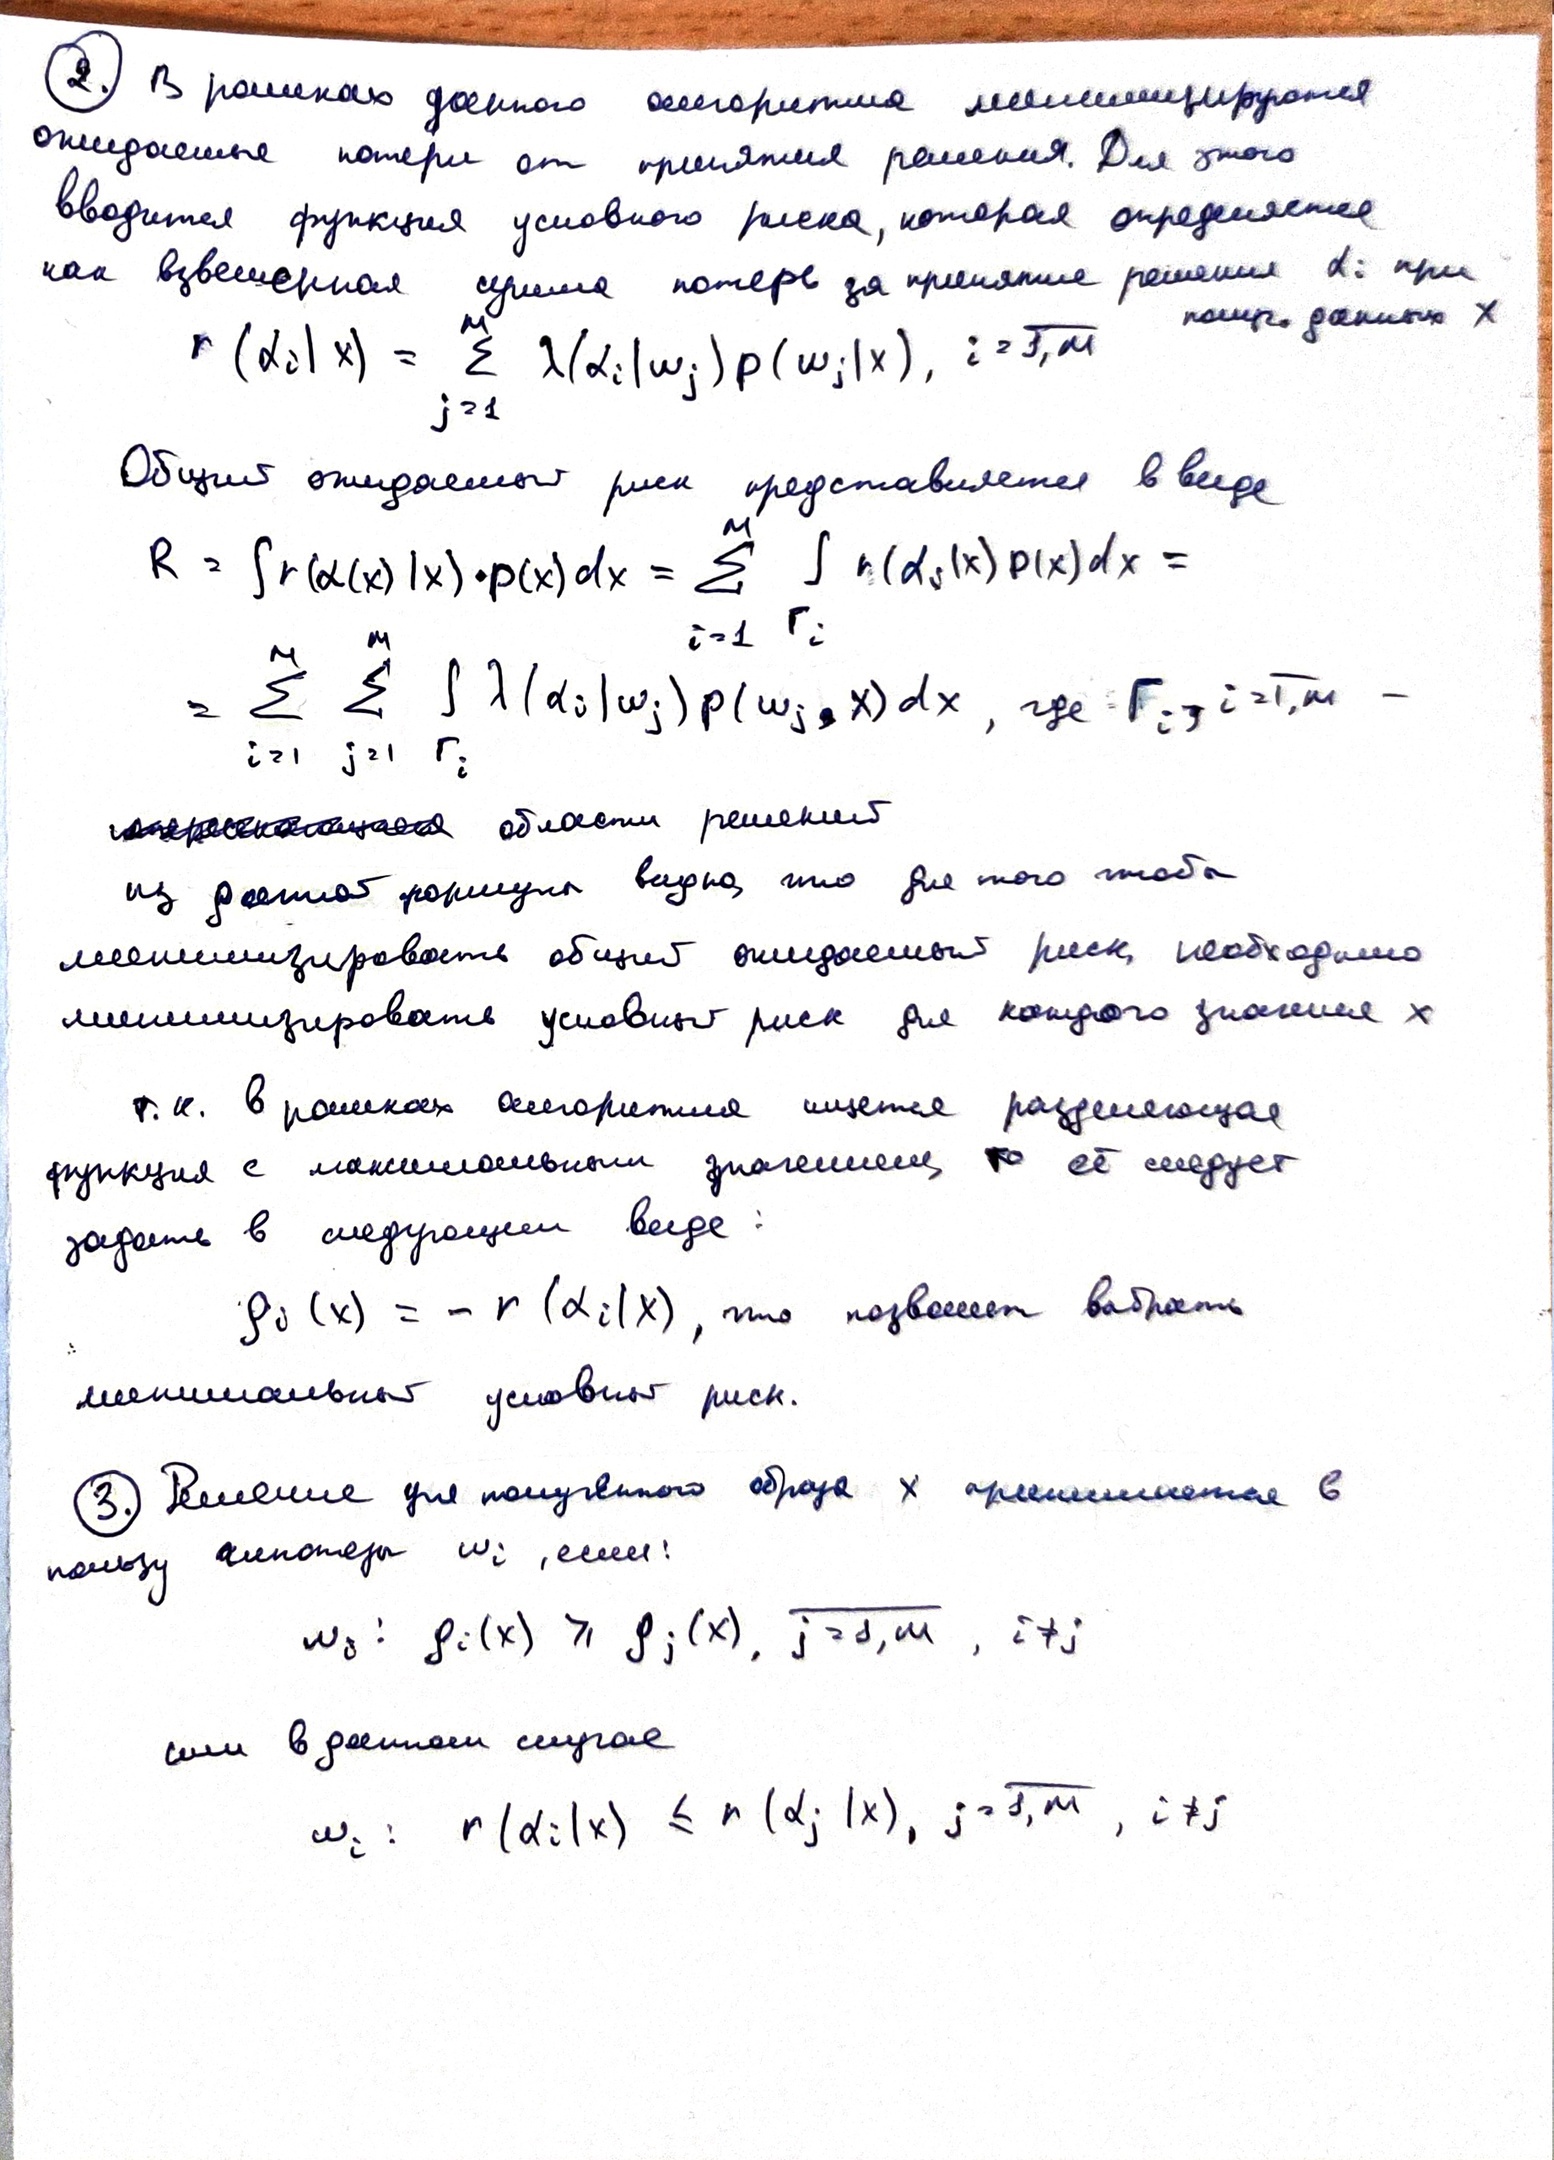 2. В рамках данного алгоритма минимизируются
ожидаемые потери от принятия решения. Для этого
вводится функция условного риска, которая определяется
как взвешенная сумма потерь за принятие решения αi при
получ. данных x
r(αi|x) = Σ_{j=1}^{M} λ(αi|ωj)p(ωj|x), i=1,M
Общий ожидаемый риск представляется в виде
R = ∫r(α(x)|x)·p(x)dx = Σ_{i=1}^{M} ∫_{Γi} r(αi|x)p(x)dx =
= Σ_{i=1}^{M} Σ_{j=1}^{M} ∫_{Γi} λ(αi|ωj)p(ωj, x)dx, где Γi, i=1,M –
области решений
из данной формулы видно, что для того чтобы
минимизировать общий ожидаемый риск, необходимо
минимизировать условный риск для каждого значения x
т.к. в рамках алгоритма ищется разделяющая
функция с максимальным значением, то её следует
задать в следующем виде:
gi(x) = – r(αi|x), что позволит выбрать
минимальный условный риск.
3. Решение для полученного образа x принимается в
пользу гипотезы ωi, если:
ωi: gi(x) ≥ gj(x), j=1,M, i≠j
или в данном случае
ωi: r(αi|x) ≤ r(αj|x), j=1,M, i≠j